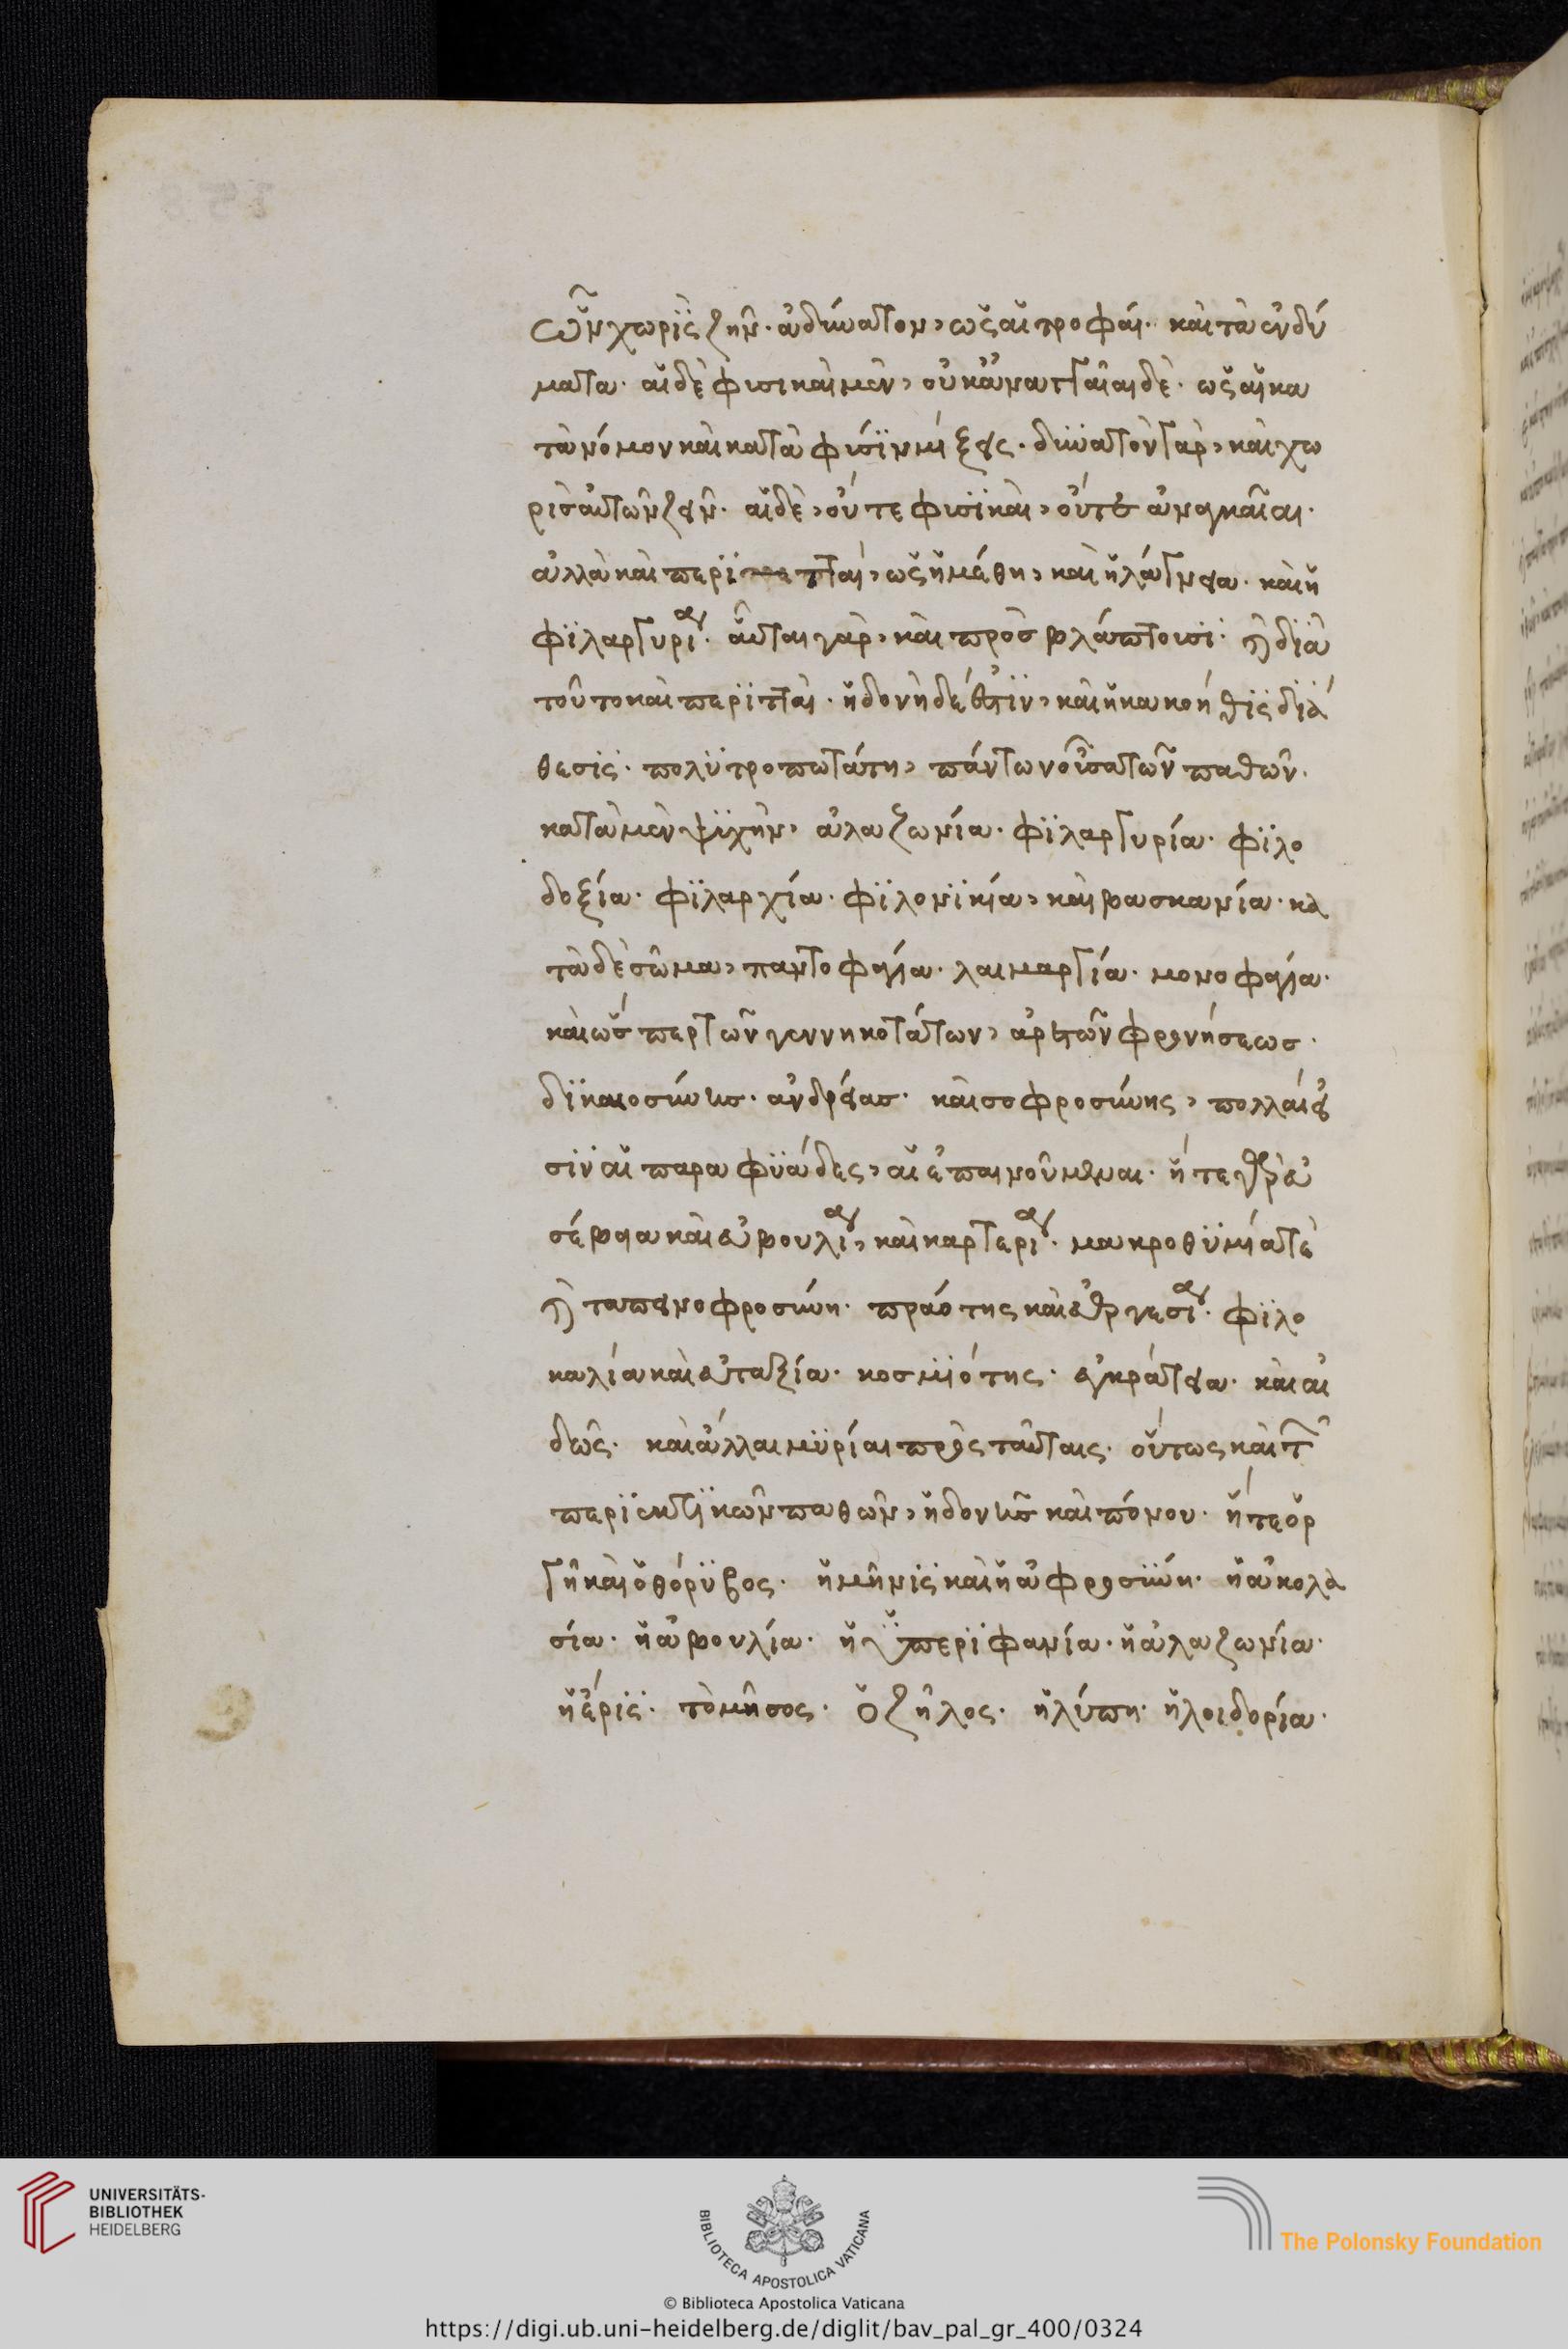 ὧν χωρὶς ζῆν· ἀδύνατον, ὡς αἱ τροφαί· καὶ τὰ ἐνδύ
ματα· αἱ δὲ φισικαὶ μὲν, οὐκ ἀναγκαῖαι δὲ· ὡς αἱ κα
τὰ νόμον καὶ κατὰ φίσϊν μίξεις· δυνατὸν γὰρ, καὶ χω
ρὶς αὐτῶν ζεῖν· αἱ δὲ, οὔτε φισϊκαὶ, οὔτε ἀναγκαῖαι·
ἀλλὰ καὶ περϊτταί, ὡς ἡ μέθη, καὶ ἡ λάγνεια· καὶ ἡ
φϊλαργυρία· αὗται γὰρ, καὶ προσβλάπτουσϊ· καὶ δϊὰ
τοῦτο καὶ περϊτταὶ· ἡδονὴ δέ ἐστϊν, καὶ ἡ κακοήθϊς δϊά
θεσϊς· πολϋτροπωτάτη, πάντων οὖσα τῶν παθῶν·
κατὰ μὲν ψϋχὴν, ἀλαζωνία· φϊλαργυρία· φϊλο
δοξία· φϊλαρχία· φϊλονϊκία, καὶ βασκανία· κα
τὰ δὲ σῶμα, παντοφαγία· λαιμαργία· μονοφαγία·
καὶ ὥσπερ τῶν γεννηκοτάτων, ἀρετῶν φρονήσεως·
δϊκαιοσύνης· ἀνδρείας· καὶ σοφροσύνης, πολλαί εἰ
σϊν αἱ παραφϋάδες, αἱ ἐπαινούμεναι· ἥ τε γὰρ εὐ
σέβεια καὶ εὐβουλία, καὶ καρτερία· μακροθϋμία τὲ
καὶ ταπεινοφροσύνη· πραότης καὶ εὐεργεσία· φϊλο
καλία καὶ εὐταξία· κοσμϊότης· ἐγκράτεια· καὶ αἰ
δὼς· καὶ ἄλλαι μϋρίαι πρὸς ταύταις· οὕτως καὶ τῶν
περϊεκτϊκῶν παθῶν, ἡδονῆς καὶ πόνου· ἥ τε ὀρ
γῆ καὶ ὁ θόρϋβος· ἡ μῆνϊς καὶ ἡ ἀφροσύνη· ἡ ἀκολα
σία· ἡ ἀβουλία· ἡ ϋπερϊφανία· ἡ ἀλαζωνία·
ἡ ἔρϊς· τὸ μῆσος· ὁ ζῆλος· ἡ λύπη· ἡ λοιδορία·
UNIVERSITÄTS-
BIBLIOTHEK
HEIDELBERG
BIBLIOTECA APOSTOLICA VATICANA
The Polonsky Foundation
© Biblioteca Apostolica Vaticana
https://digi.ub.uni-heidelberg.de/diglit/bav_pal_gr_400/0324